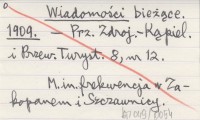 Wiadomości bieżące.
1909. – Prz. Zdroj.-Kąpiel.
i Przew. Turyst. 8, nr 12.
M. in. frekwencja w Za-
kopanem i Szczawnicy.